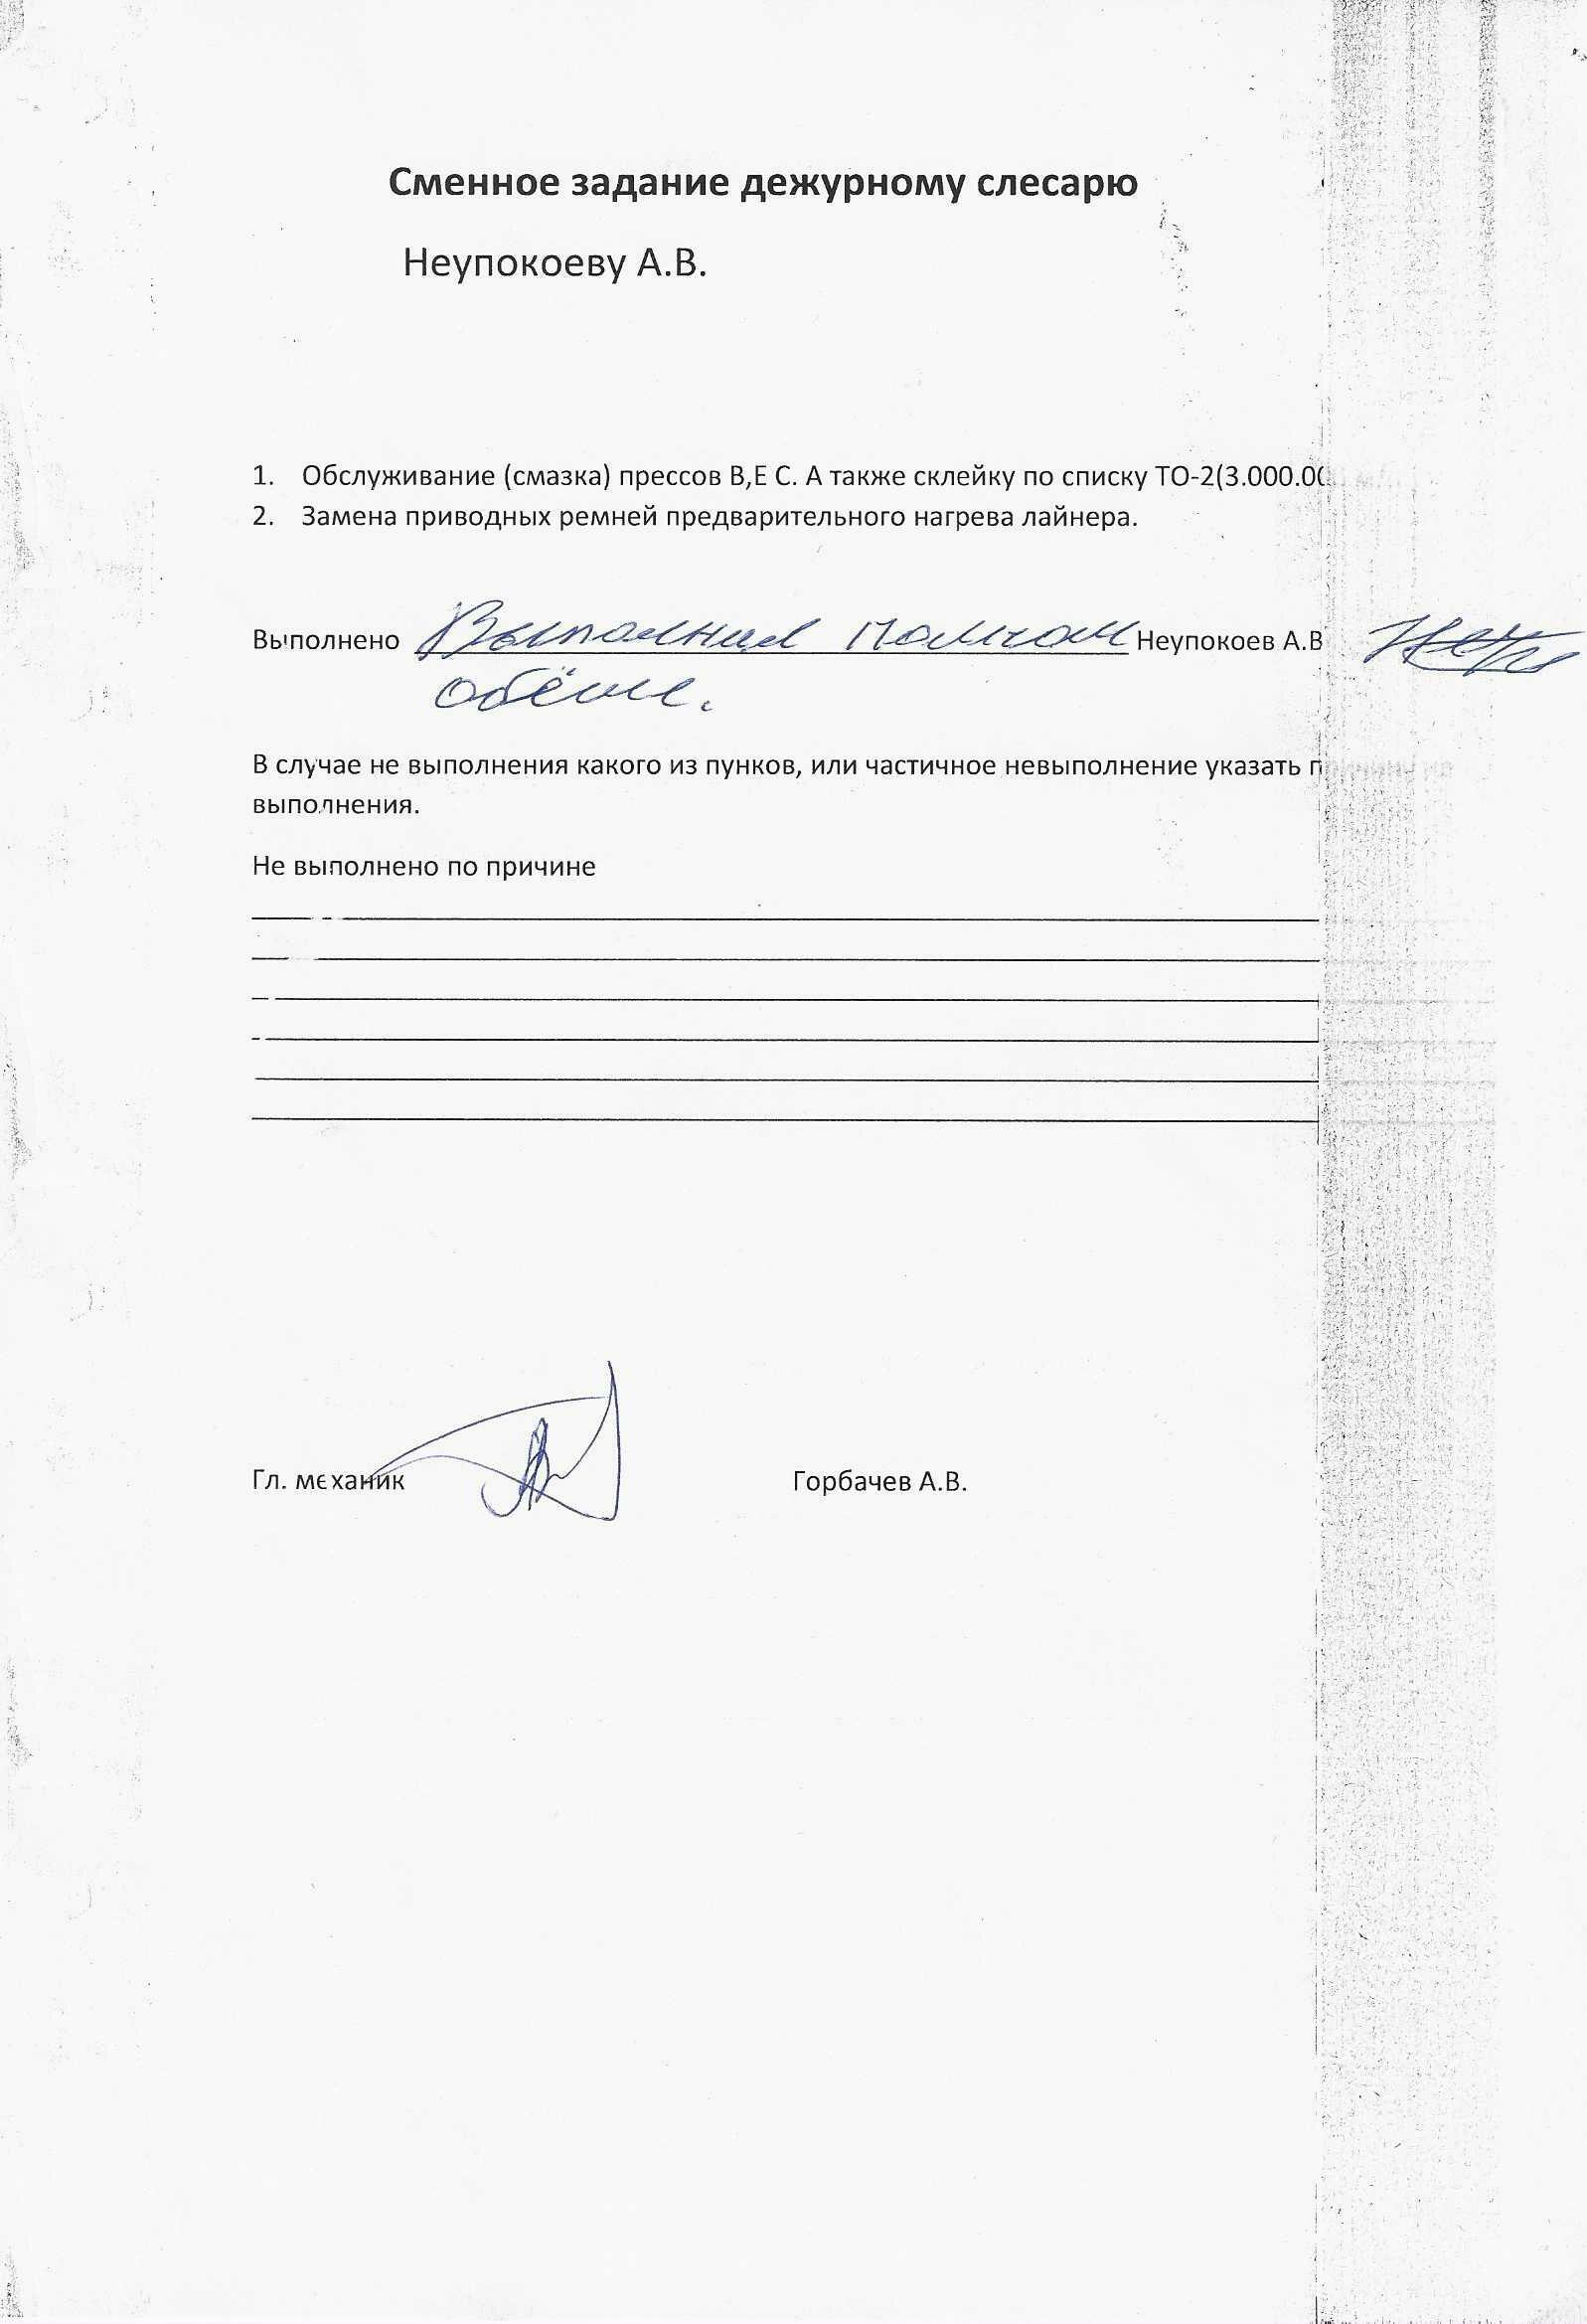 Сменное задание дежурному слесарю
Неупокоеву А.В.
1. Обслуживание (смазка) прессов В,Е С. А также склейку по списку ТО-2(3.000.00
2. Замена приводных ремней предварительного нагрева лайнера.
Выполнено Выполнил полном Неупокоев А.В
обёме.
В случае не выполнения какого из пунков, или частичное невыполнение указать причину не
выполнения.
Не выполнено по причине
Гл. механик Горбачев А.В.